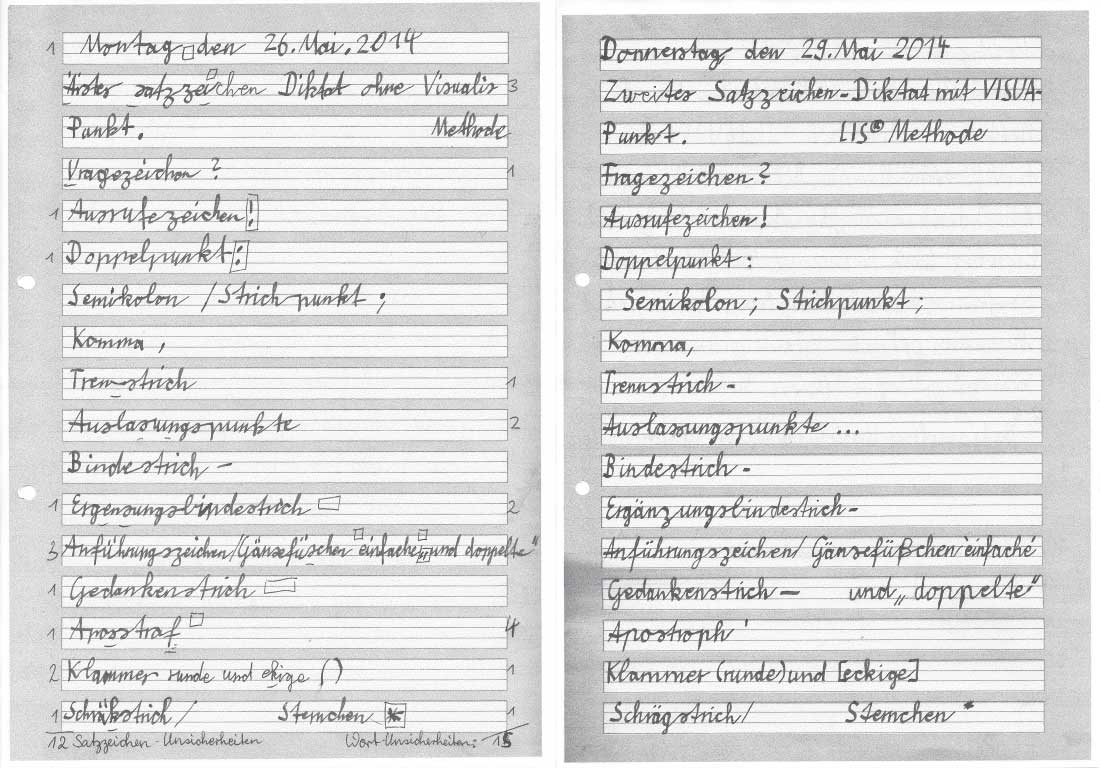 1 Montag den 26. Mai. 2014
Ärster satzzeichen Diktat ohne Visualis 3
Punkt. Methode
Vragezeichen ? 1
1 Ausrufezeichen !
1 Doppelpunkt :
Semikolon / Strichpunkt ;
Komma ,
Trenstrich 1
Auslasungspunkte 2
Bindestrich –
1 Ergensungsbindestrich 2
3 Anführungszeichen/Gänsefüschen einfache und doppelte“
1 Gedankenstrich
1 Aposstraf 4
2 Klammer runde und ekige () 1
1 Schräkstrich / Sternchen * 1
12 Satzzeichen-Unsicherheiten Wort-Unsicherheiten: 15
Donnerstag den 29. Mai 2014
Zweites Satzzeichen-Diktat mit VISUA-
Punkt. LIS® Methode
Fragezeichen ?
Ausrufezeichen !
Doppelpunkt :
Semikolon ; Strichpunkt ;
Komma,
Trennstrich -
Auslassungspunkte ...
Bindestrich -
Ergänzungsbindestrich-
Anführungszeichen/ Gänsefüßchen ‘einfache‘
Gedankenstrich — und „doppelte“
Apostroph '
Klammer (runde) und [eckige]
Schrägstrich/ Sternchen *